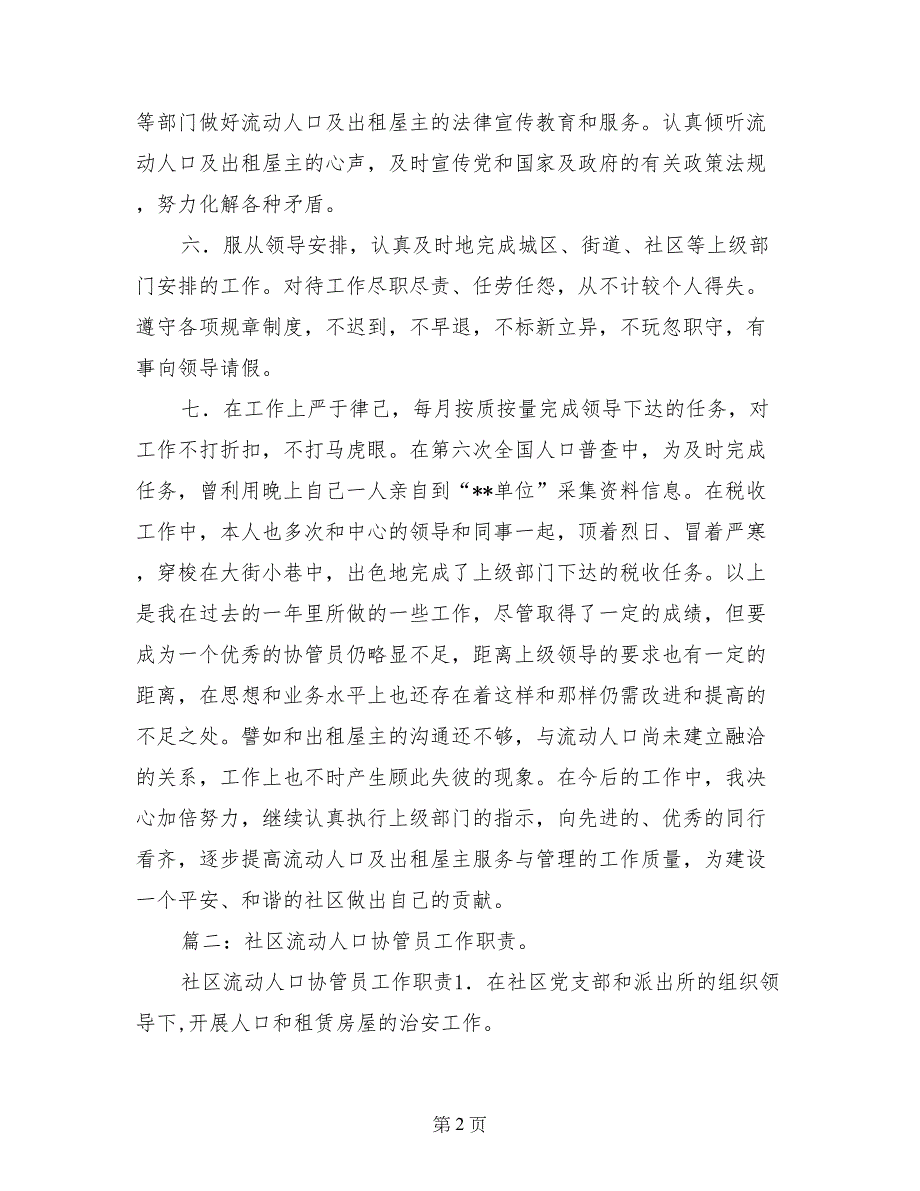 等部门做好流动人口及出租屋主的法律宣传教育和服务。认真倾听流
动人口及出租屋主的心声，及时宣传党和国家及政府的有关政策法规
，努力化解各种矛盾。
六．服从领导安排，认真及时地完成城区、街道、社区等上级部
门安排的工作。对待工作尽职尽责、任劳任怨，从不计较个人得失。
遵守各项规章制度，不迟到，不早退，不标新立异，不玩忽职守，有
事向领导请假。
七．在工作上严于律己，每月按质按量完成领导下达的任务，对
工作不打折扣，不打马虎眼。在第六次全国人口普查中，为及时完成
任务，曾利用晚上自己一人亲自到“**单位”采集资料信息。在税收
工作中，本人也多次和中心的领导和同事一起，顶着烈日、冒着严寒
，穿梭在大街小巷中，出色地完成了上级部门下达的税收任务。以上
是我在过去的一年里所做的一些工作，尽管取得了一定的成绩，但要
成为一个优秀的协管员仍略显不足，距离上级领导的要求也有一定的
距离，在思想和业务水平上也还存在着这样和那样仍需改进和提高的
不足之处。譬如和出租屋主的沟通还不够，与流动人口尚未建立融洽
的关系，工作上也不时产生顾此失彼的现象。在今后的工作中，我决
心加倍努力，继续认真执行上级部门的指示，向先进的、优秀的同行
看齐，逐步提高流动人口及出租屋主服务与管理的工作质量，为建设
一个平安、和谐的社区做出自己的贡献。
篇二：社区流动人口协管员工作职责。
社区流动人口协管员工作职责1．在社区党支部和派出所的组织领
导下,开展人口和租赁房屋的治安工作。
第 2 页